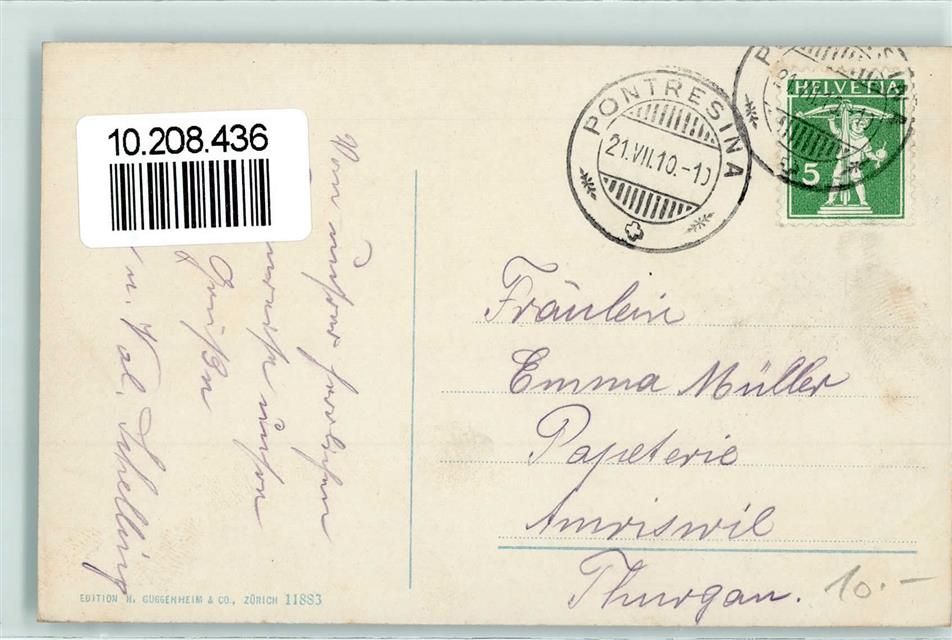 10.208.436
PONTRESINA
21.VII.10.-10
HELVETIA
5
Vom unserer herrlichen
unsern
Grüßen
u. Val. Schelling
Fräulein
Emma Müller
Papeterie
Amriswil
Thurgau.
10.-
EDITION H. GUGGENHEIM & CO., ZÜRICH 11883